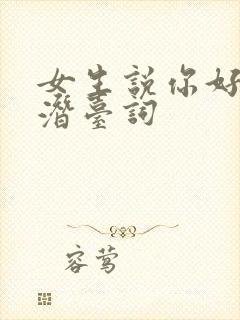 女生説你好
潛臺詞
容莺